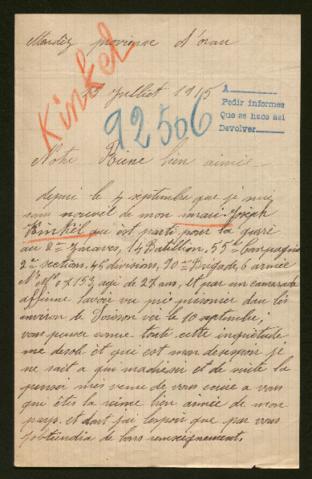 province d'oran
Kinkel
Juillet 1915
A
Pedir informes
Que se hace asi
Devolver
92506
Notre Reine bien aimée
depuis le 4 septembre que je suis
sans nouvel de mon mari Joseph
Kinkel qui est parti pour la guerre
au 2me Zouaves, 14 Batillion, 55me Compagnie
2me sections, 46 divisions, 90me Brigade, 6 armée
age de 27 ans, et par un camarade
affirme lavoir vu pri prisonier dan les
environ de Soisson voir le 10 septembre,
vous pensez avec toute cette inquiétude
me desole et que est mon desespoir je
ne sait a qui madresse et de suite la
penser mes venue de vous a vous
qui êtes la reine bien aimée de mon
pays. et dont jai lespoir que par vous
jobtiendia de bons renseignement.